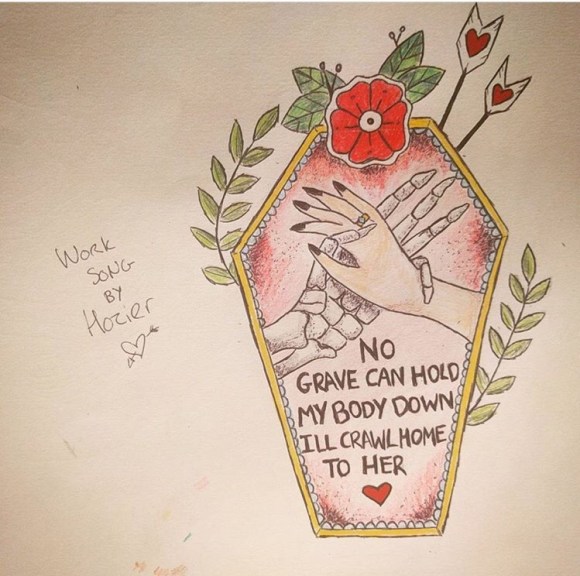 WORK
SONG
BY
Hozier
NO
GRAVE CAN HOLD
MY BODY DOWN
ILL CRAWL HOME
TO HER